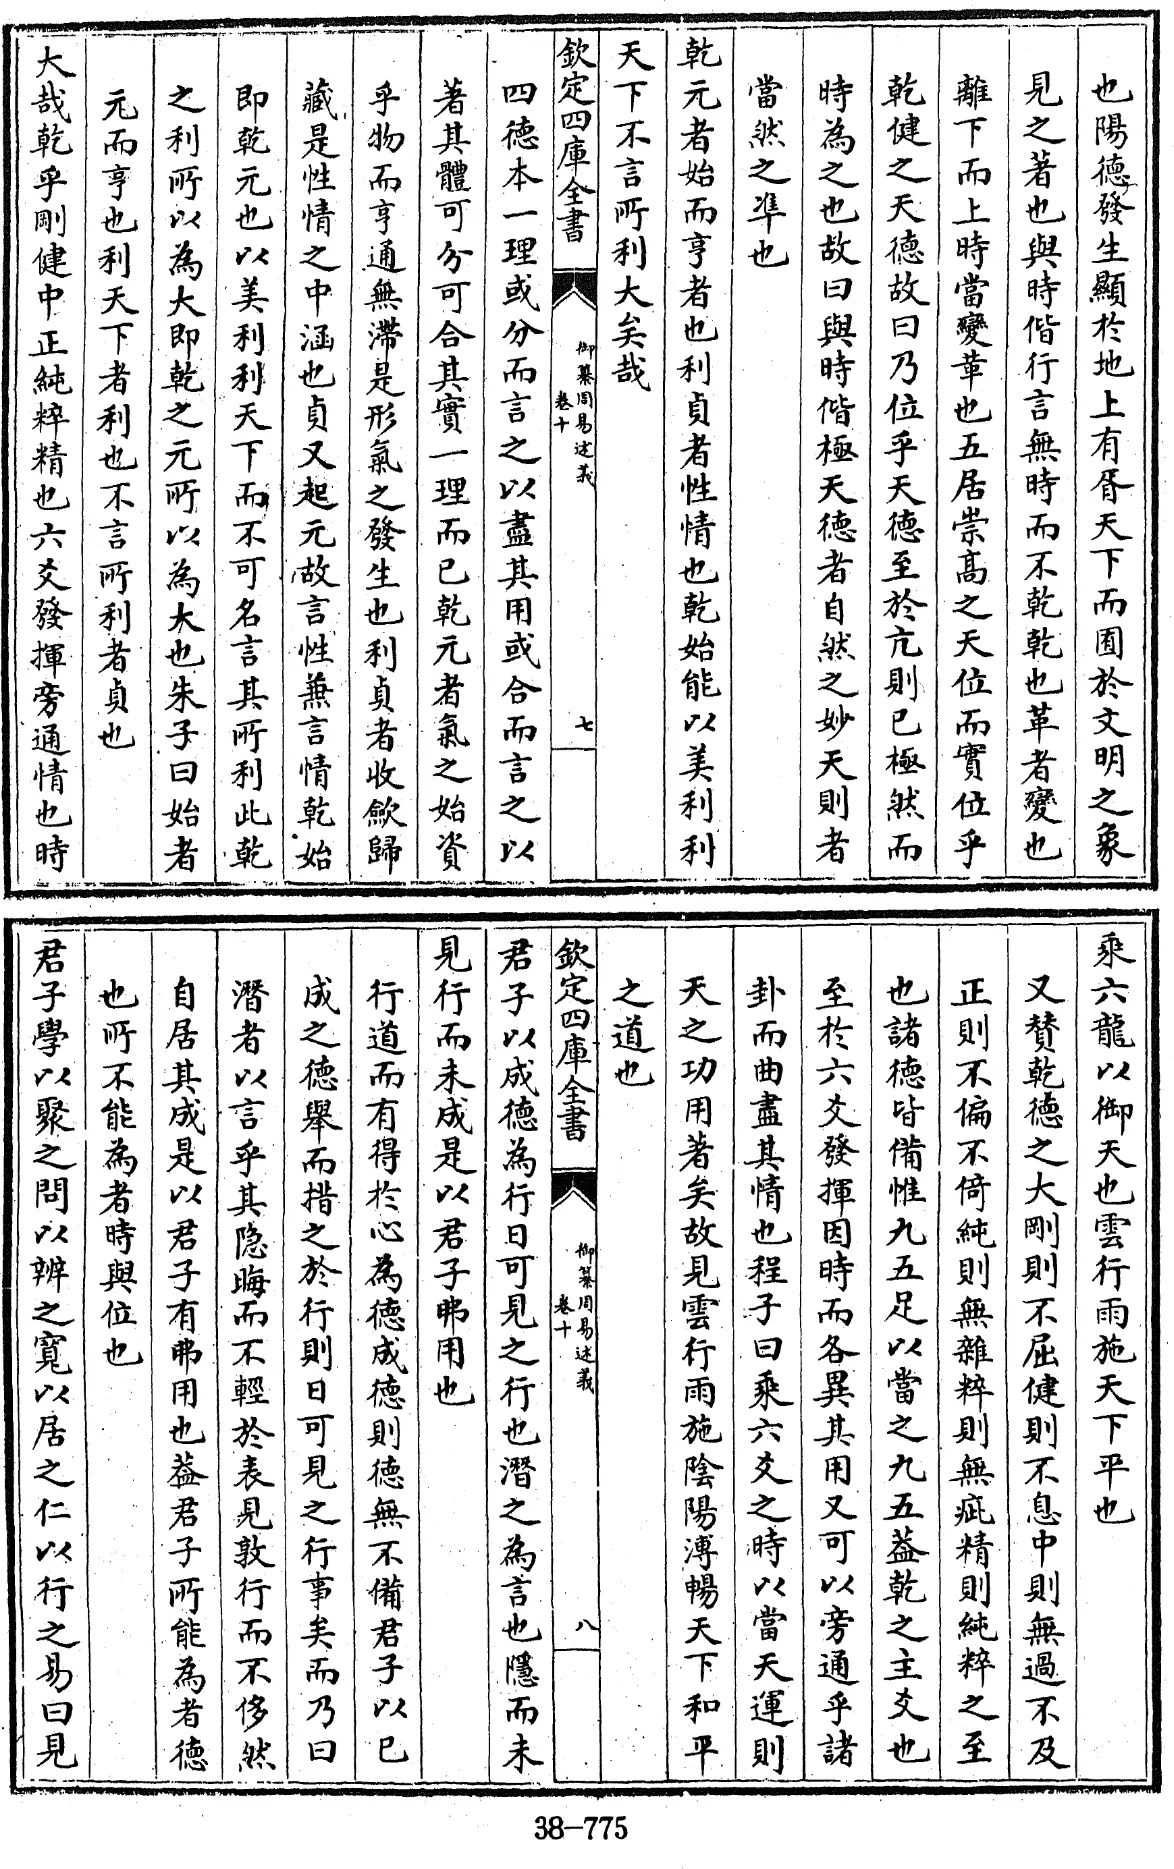 也陽德發生顯於地上有孚天下而囿於文明之象
見之著也與時偕行言無時而不乾乾也革者變也
離下而上時當變革也五居崇高之天位而實位乎
乾健之天德故曰乃位乎天德至於亢則已極然而
時為之也故曰與時偕極天德者自然之妙天則者
當然之凖也
乾元者始而亨者也利貞者性情也乾始能以美利利
天下不言所利大矣哉
欽定四庫全書
御纂周易述義
卷十
七
四德本一理或分而言之以盡其用或合而言之以
著其體可分可合其實一理而已乾元者氣之始資
乎物而亨通無滯是形氣之發生也利貞者收歛歸
藏是性情之中涵也貞又起元故言性兼言情乾始
即乾元也以美利利天下而不可名言其所利此乾
之利所以為大即乾之元所以為大也朱子曰始者
元而亨也利天下者利也不言所利者貞也
大哉乾乎剛健中正純粹精也六爻發揮旁通情也時
乘六龍以御天也雲行雨施天下平也
又贊乾德之大剛則不屈健則不息中則無過不及
正則不偏不倚純則無雜粹則無疵精則純粹之至
也諸德皆備惟九五足以當之九五葢乾之主爻也
至於六爻發揮因時而各異其用又可以旁通乎諸
卦而曲盡其情也程子曰乘六爻之時以當天運則
天之功用著矣故見雲行雨施陰陽溥暢天下和平
之道也
欽定四庫全書
御纂周易述義
卷十
八
君子以成德為行日可見之行也潛之為言也隱而未
見行而未成是以君子弗用也
行道而有得於心為德成德則德無不備君子以已
成之德舉而措之於行則日可見之行事矣而乃曰
潛者以言乎其隱晦而不輕於表見敦行而不侈然
自居其成是以君子有弗用也葢君子所能為者德
也所不能為者時與位也
君子學以聚之問以辨之寬以居之仁以行之易曰見
38-775